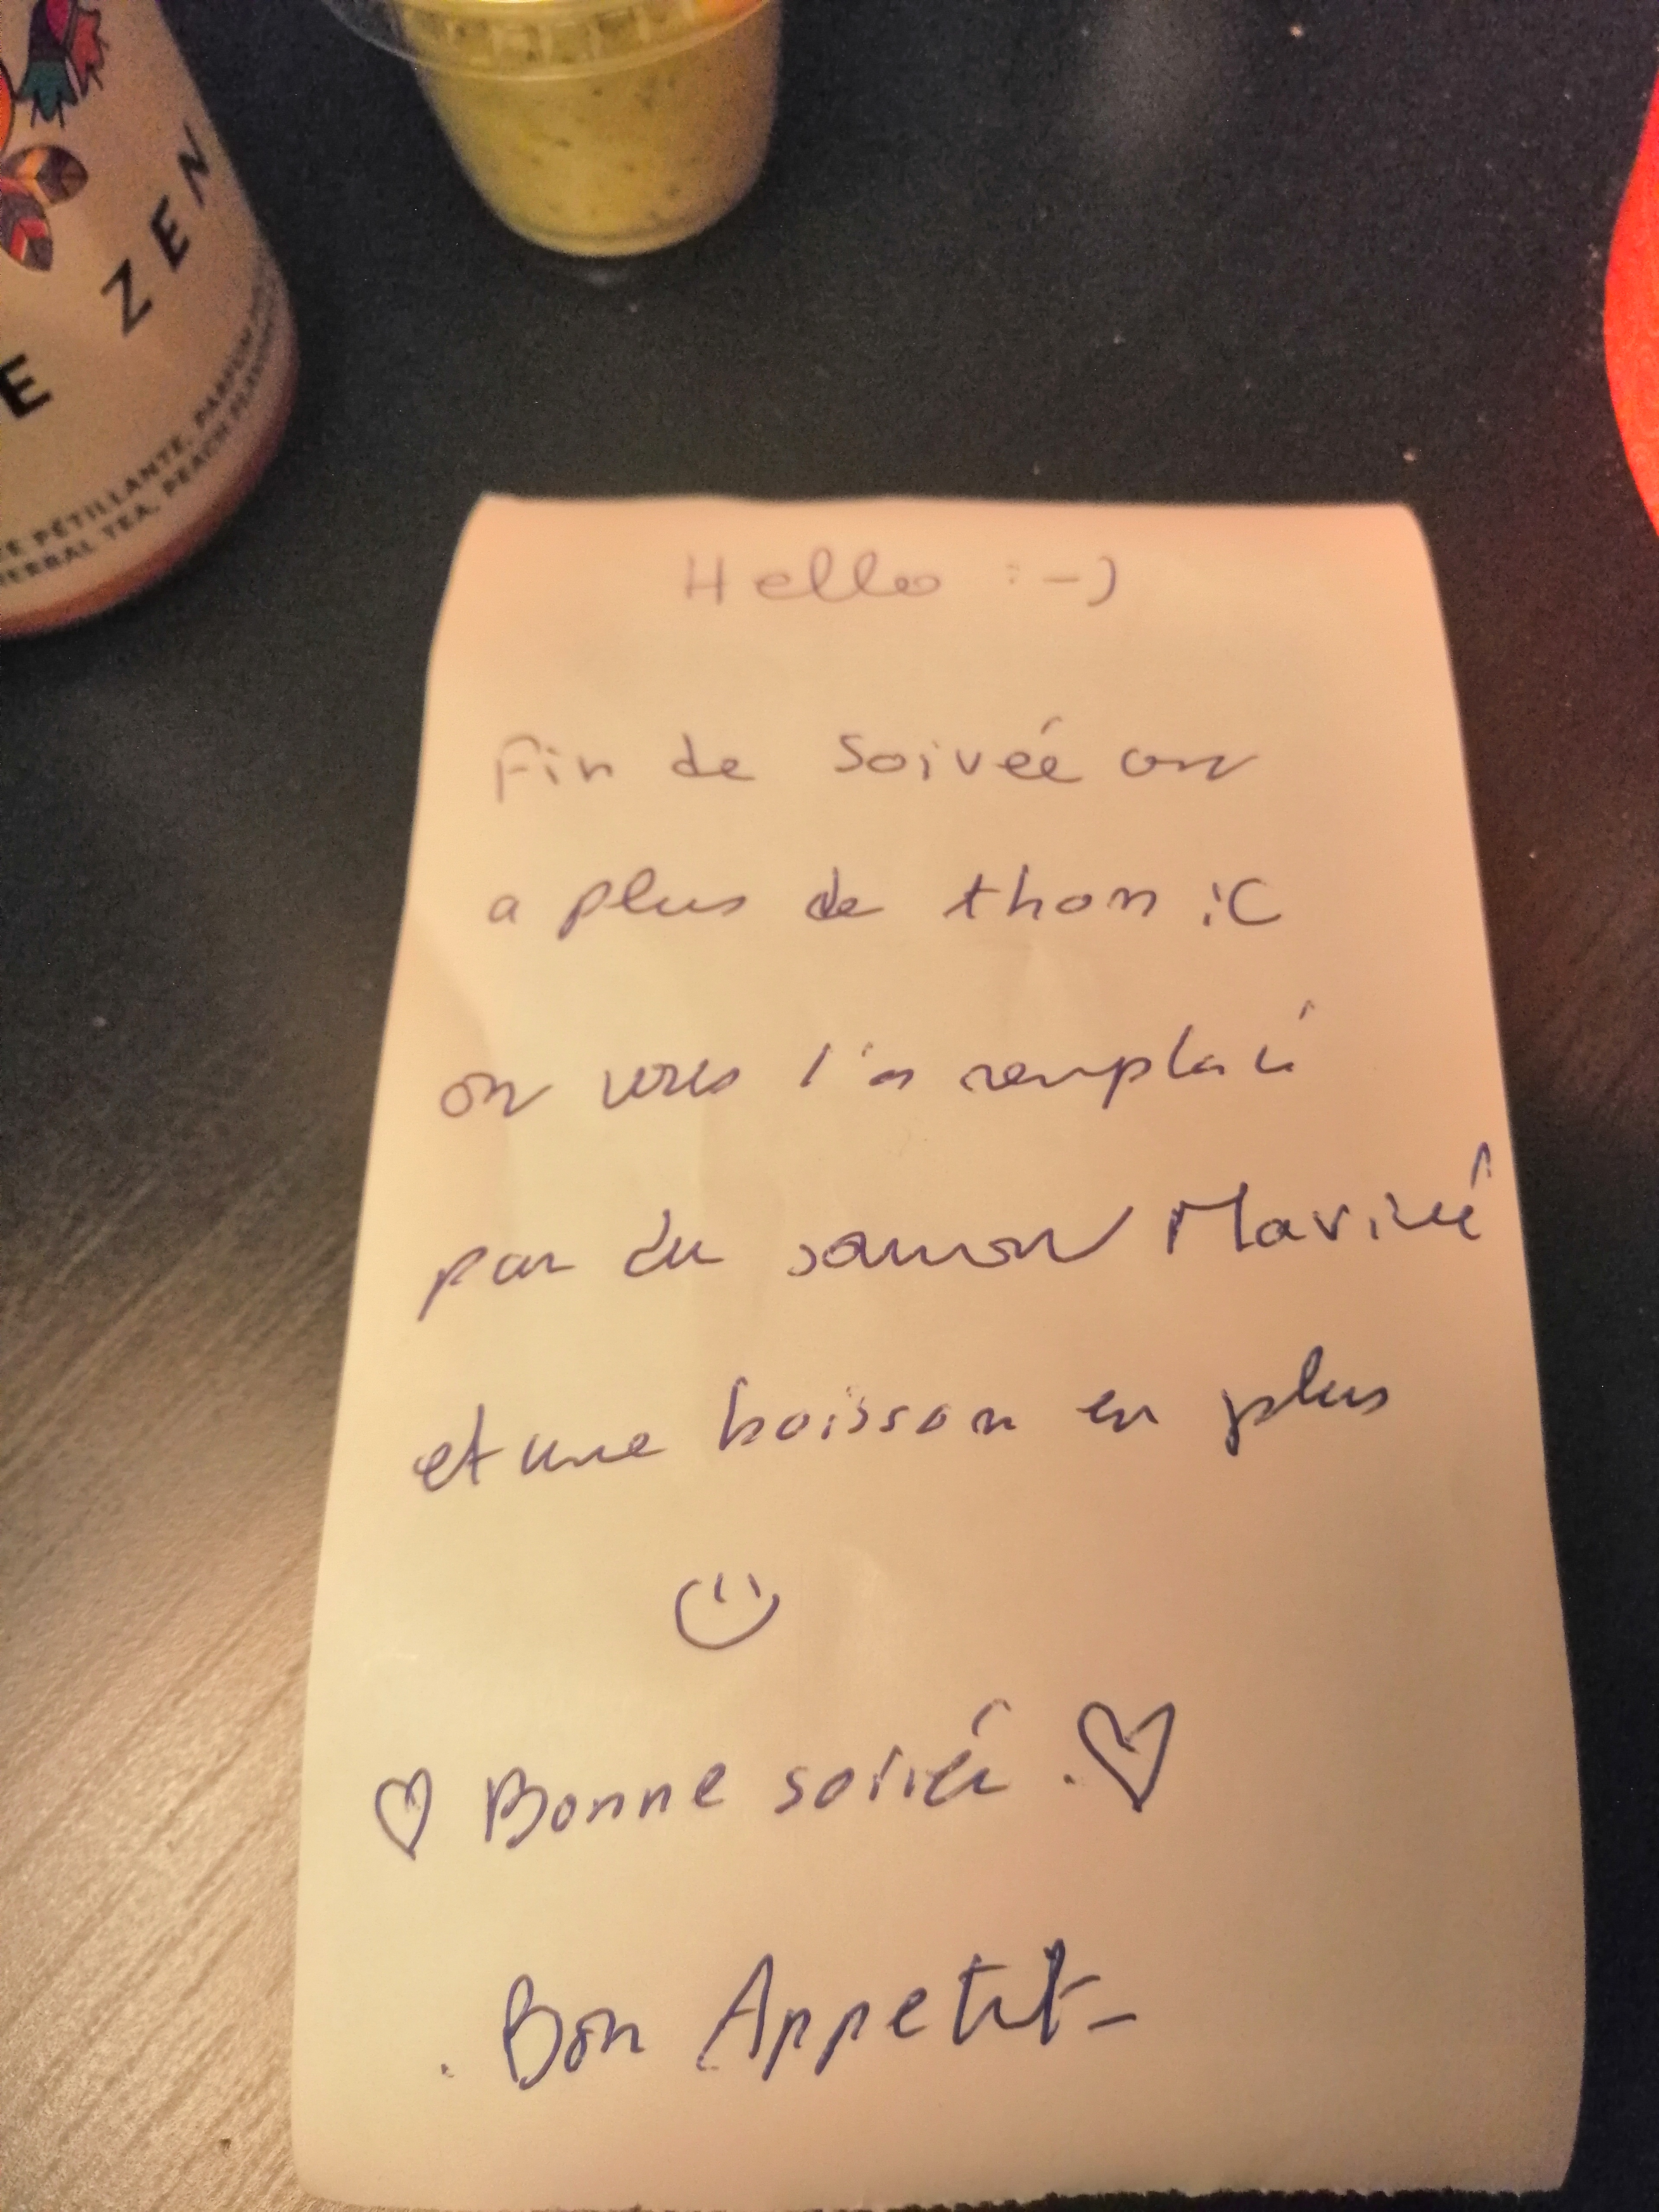 E ZEN
TE PÉTILLANTE, PARFUM
HERBAL TEA, PEACH FLAVOUR
Hello :-)
Fin de soirée on
a plus de thon :C
on vous l'a remplacé
par du saumon Mariné
et une boisson en plus
♡ Bonne soirée . ♡
. Bon Appetit -